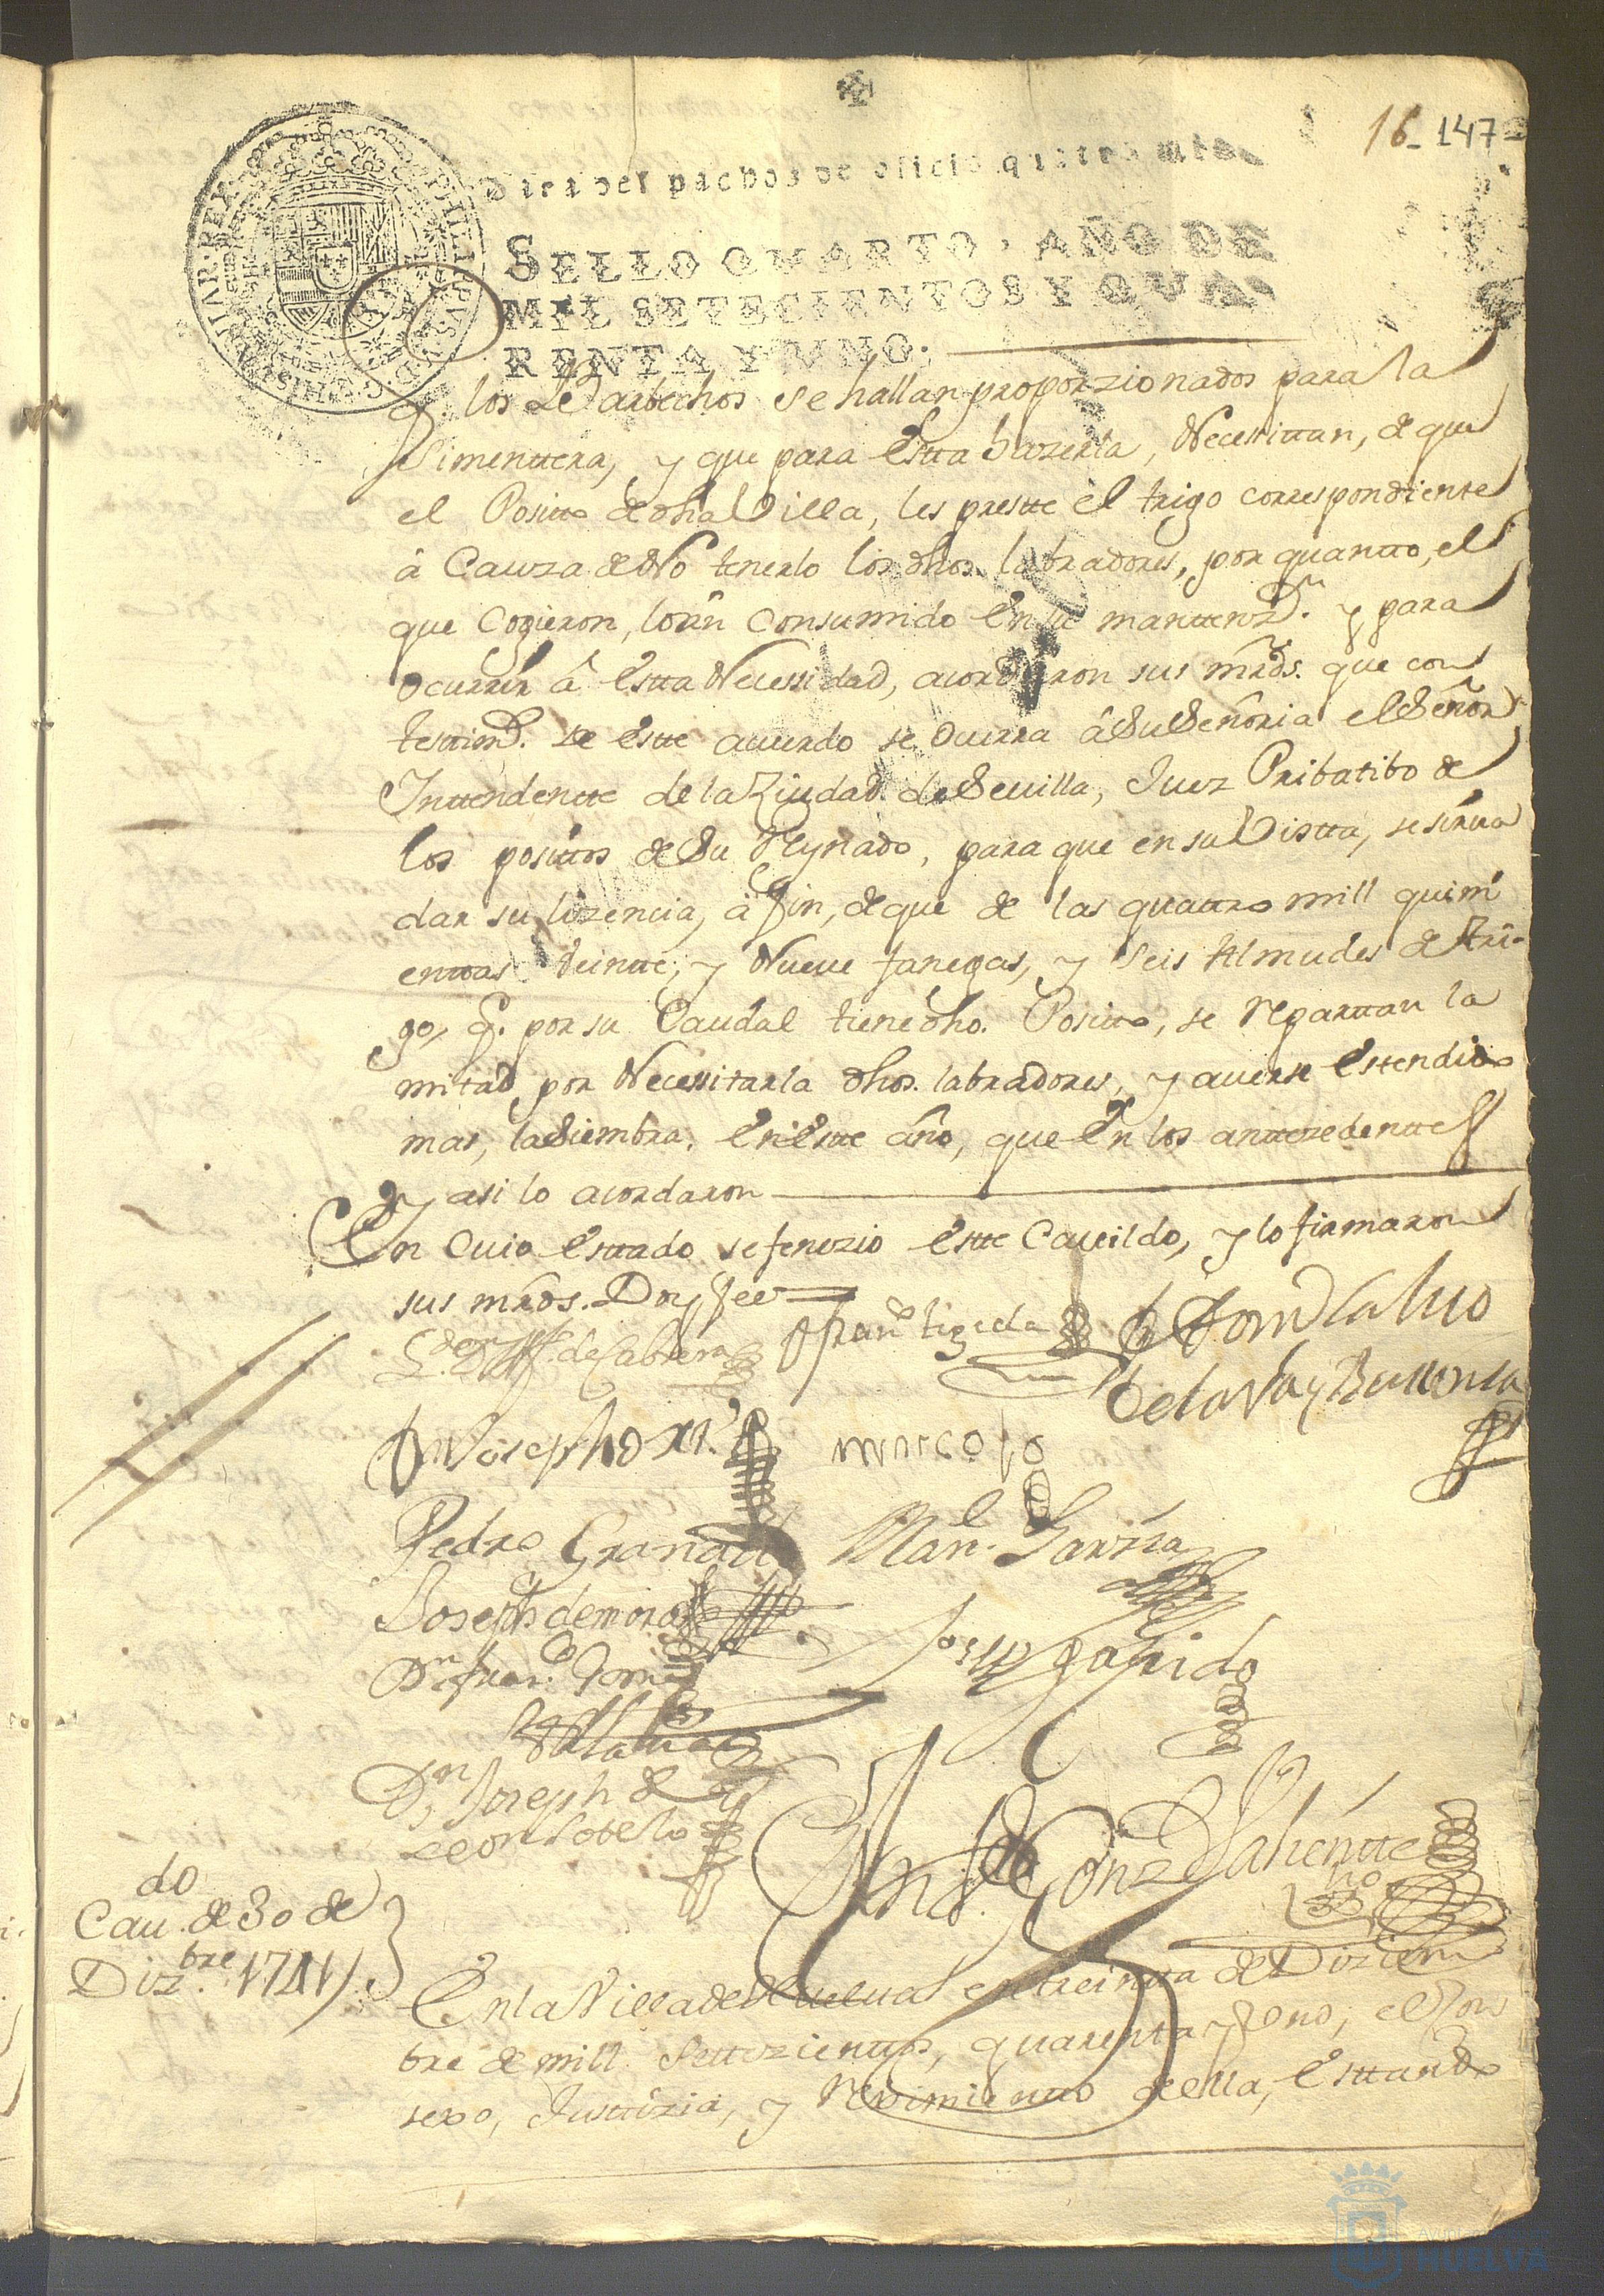 16 - 147
PHILIPPUS V D G HISPANIAR REX
Para despachos de oficio quatro mrs
SELLO QUARTO, AÑO DE
MIL SETECIENTOS Y QUA
RENTA Y UNO.
q. los Barbechos se hallan proporzionados para la
Simenttera, y que para Estta hazerla, Necesittan, de que
el Positto de dha Villa, les prestte el trigo correspondiente
â Cauza de No tenerlo los dhos. labradores, por quantto, el
que Cogieron, loan consumido En su manttenzn. y para
ocurrir â Estta Necessidad, acordaron sus mrds. que con
testtimo. de Estte acuerdo se Ocurra â Su Señoria el Señor
Inttendentte de la Ziudad de Sevilla, Juez Pribatibo de
los posittos de Su Reynado, para que en su Vistta, se sirva
dar su lizencia, â fin, de que de las quattro mill quini
enttas Veintte, y Nueve fanegas, y Seis Almudes de Tri-
go, q. por su Caudal tiene dho. Positto, se reparttan la
mitad por Necessitarla dhos. labradores, y averse Estendido
mas, la Siembra, En Estte año, que En los anttezedenttes
y asi lo acordaron
En Cuio Esttado se fenezio Estte Cavildo, y lo firmaron
sus mrds. Doy fee
de Cabrera Franco tixeda
Marcos
Pedro Granado Manl. Garzia
Joseph de mora
Joseph garrido
Dn Juan
Dn Joseph de
Leon Sotelo
Gonz Valientte
Cavdo. de 30 de
Dizbre. 1741
En la Villa de Huelva en treintta de Diziem
bre de mill Settezienttos, quarentta y Uno, el Con
sexo, Justtizia, y Reximientto de ella, Esttando
HUELVA